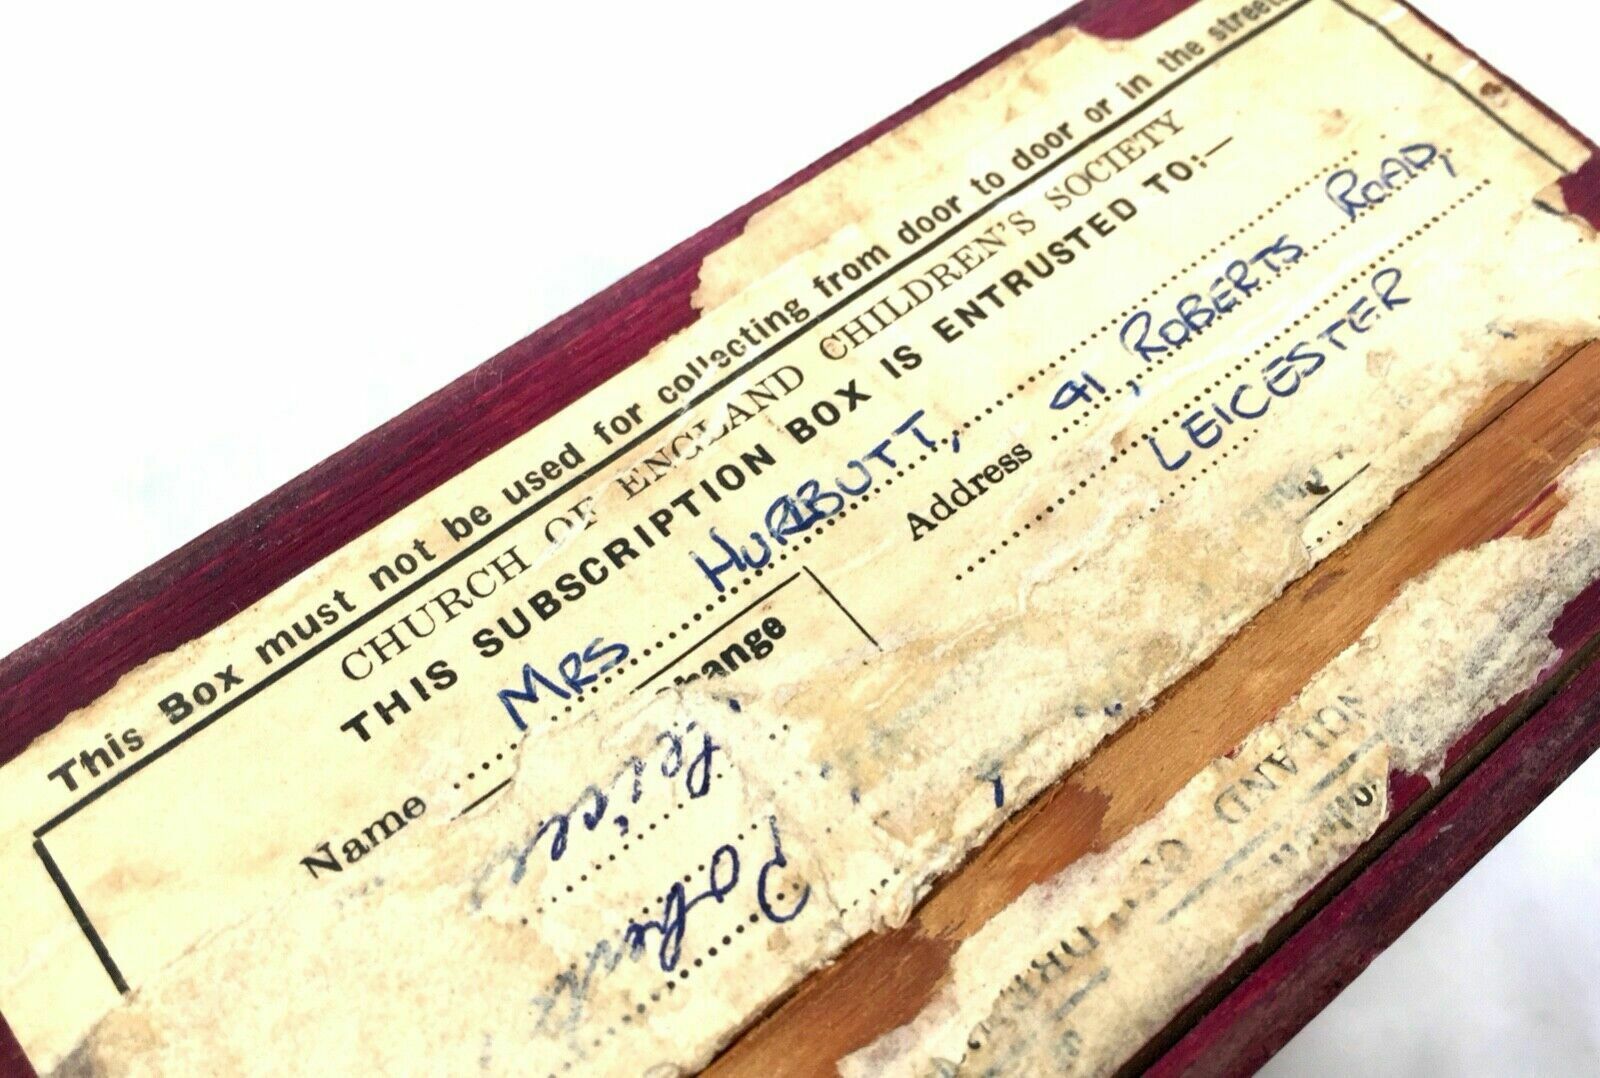 This Box must not be used for collecting from door to door or in the streets
CHURCH OF ENGLAND CHILDREN'S SOCIETY
THIS SUBSCRIPTION BOX IS ENTRUSTED TO:—
Name MRS HURLBUTT,
Address 41, ROBERTS ROAD,
LEICESTER
change